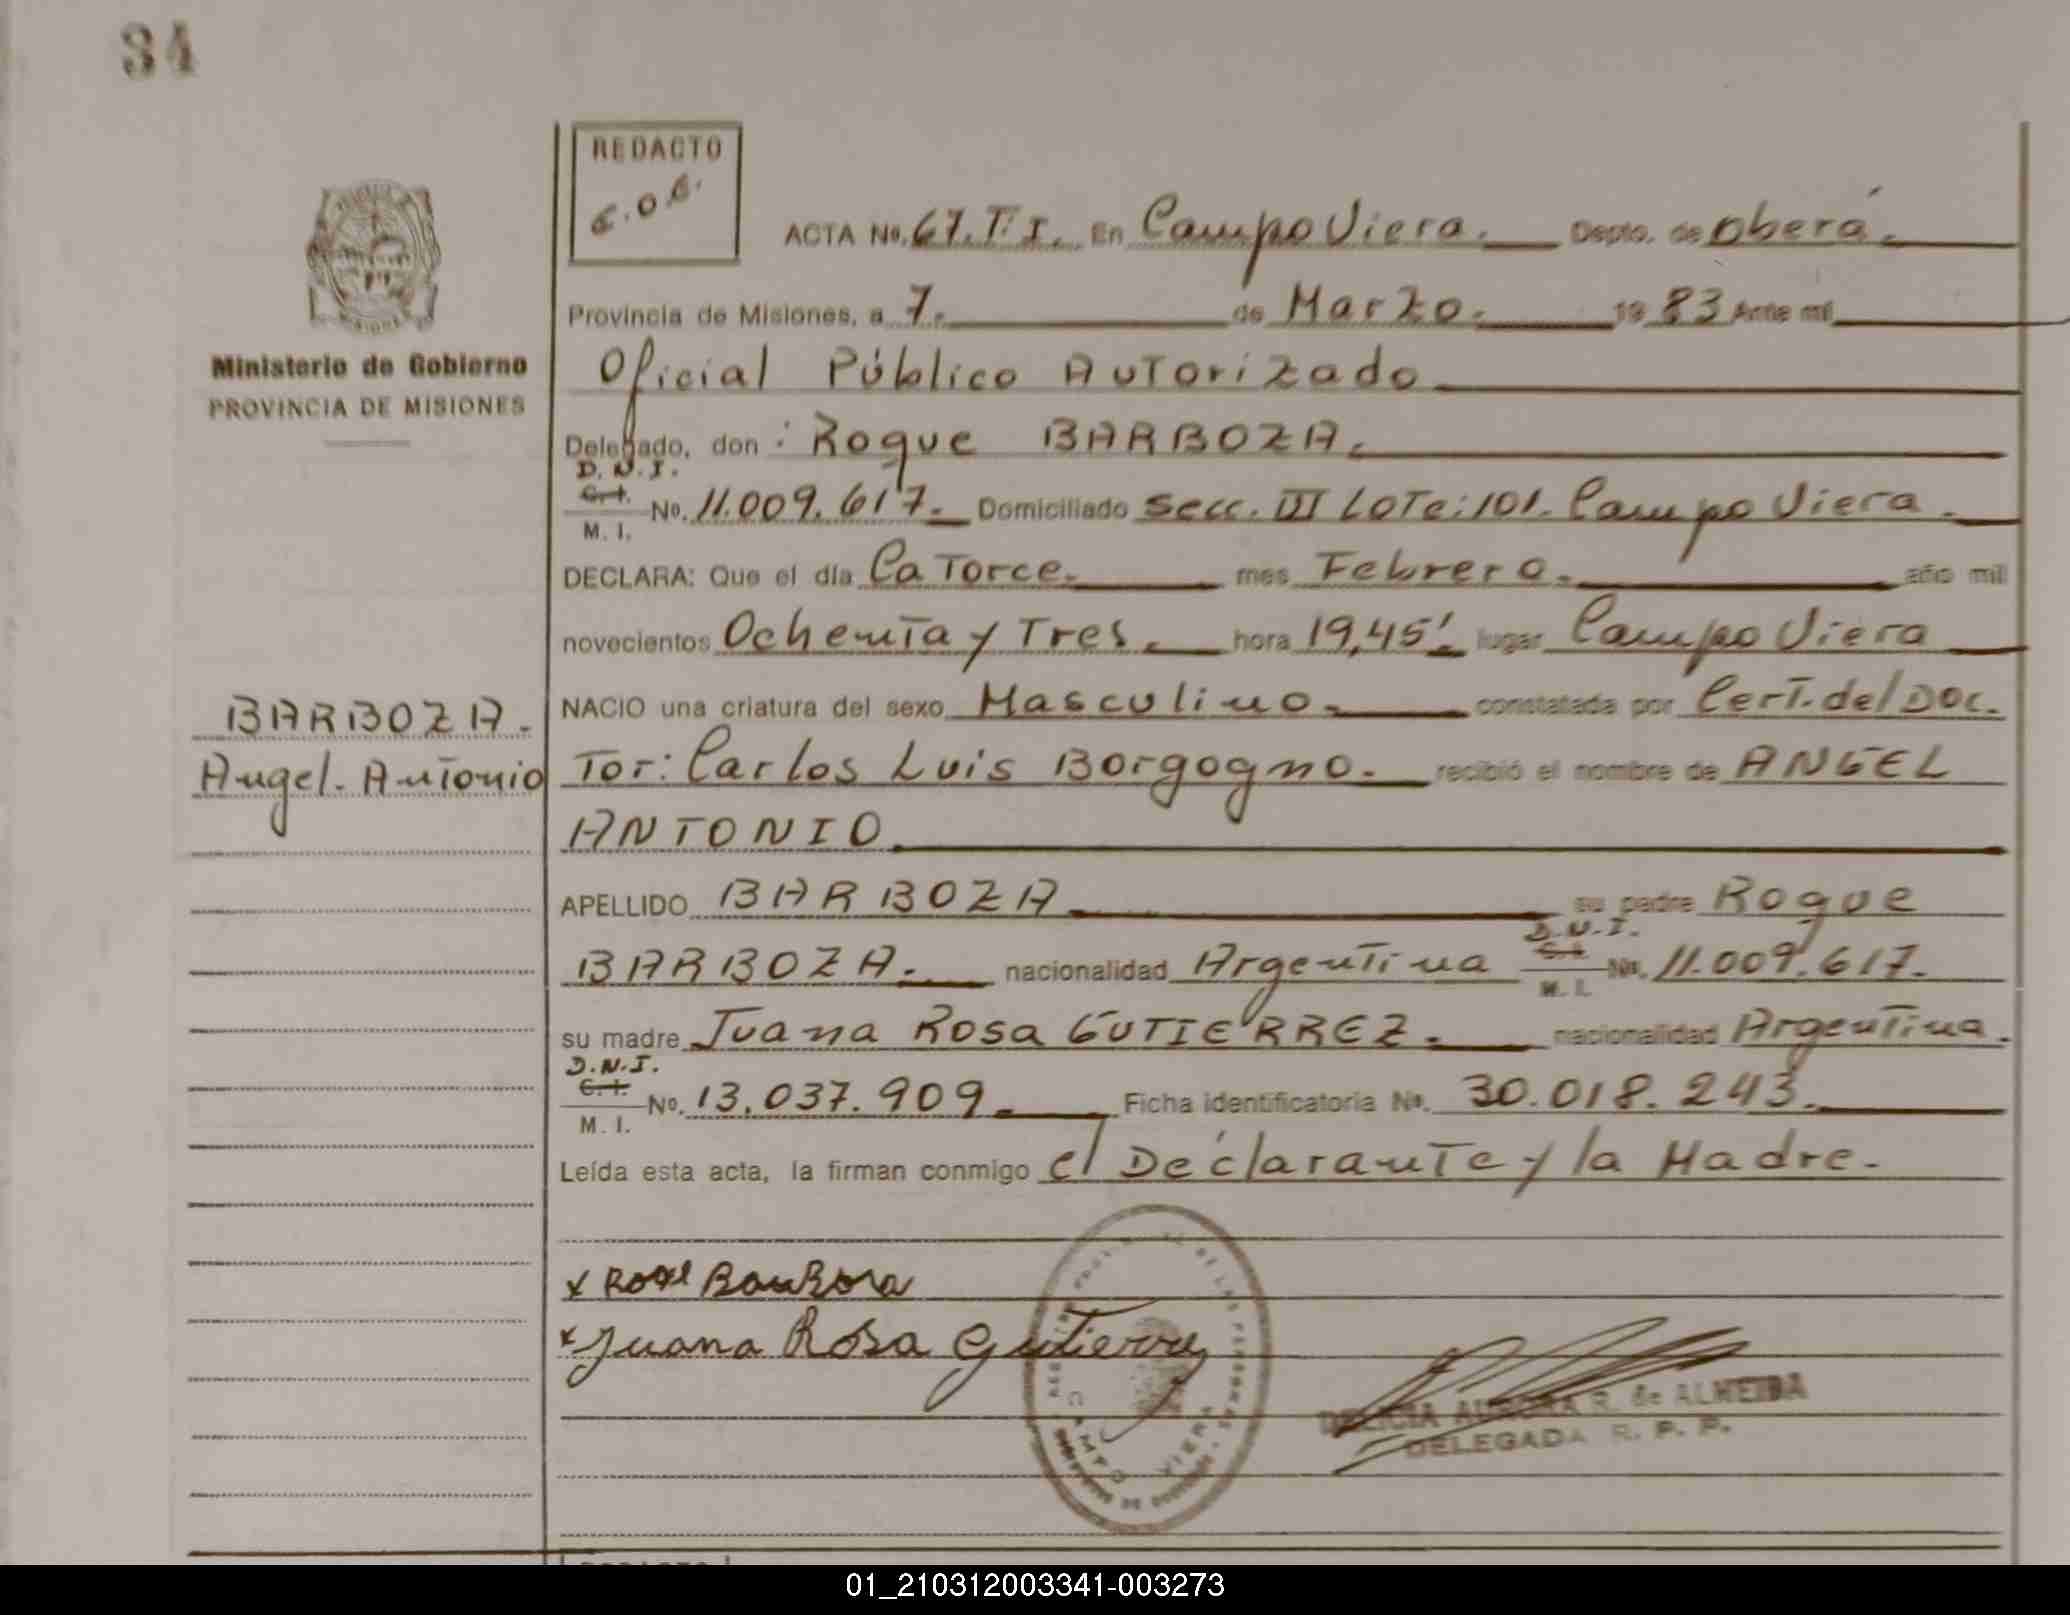 34
REDACTO
ACTA No. 67. T: I. En Campo Viera. Depto. de Oberá.
Provincia de Misiones, a 7. de Marzo. 19 83 Ante mi
Ministerio de Gobierno
PROVINCIA DE MISIONES
Oficial Público Autorizado
Delegado, don : Roque BARBOZA.
D.N.I.
C.I.
M. I.
No. 11.009.617. Domiciliado Secc. III Lote: 101. Campo Viera.
DECLARA: Que el día Catorce. mes Febrero. año mil
novecientos Ochenta y Tres. hora 19,45'. lugar Campo Viera
BARBOZA.
Angel. Antonio
NACIO una criatura del sexo Masculino. constatada por Cert. del Doc.
Tor: Carlos Luis Borgogno. recibió el nombre de ANGEL
ANTONIO
APELLIDO BARBOZA su padre Roque
BARBOZA. nacionalidad Argentina D.N.I. C.I. M. I. No. 11.009.617.
su madre Juana Rosa GUTIERREZ. nacionalidad Argentina.
D.N.I.
C.I.
M. I.
No. 13.037.909. Ficha identificatoria No. 30.018.243.
Leída esta acta, la firman conmigo el Declarante y la Madre.
x
x Juana Rosa Gutierrez
CAMPO VIERA
DELICIA AURORA R. de ALMEIDA
DELEGADA R. P. P.
01_210312003341-003273